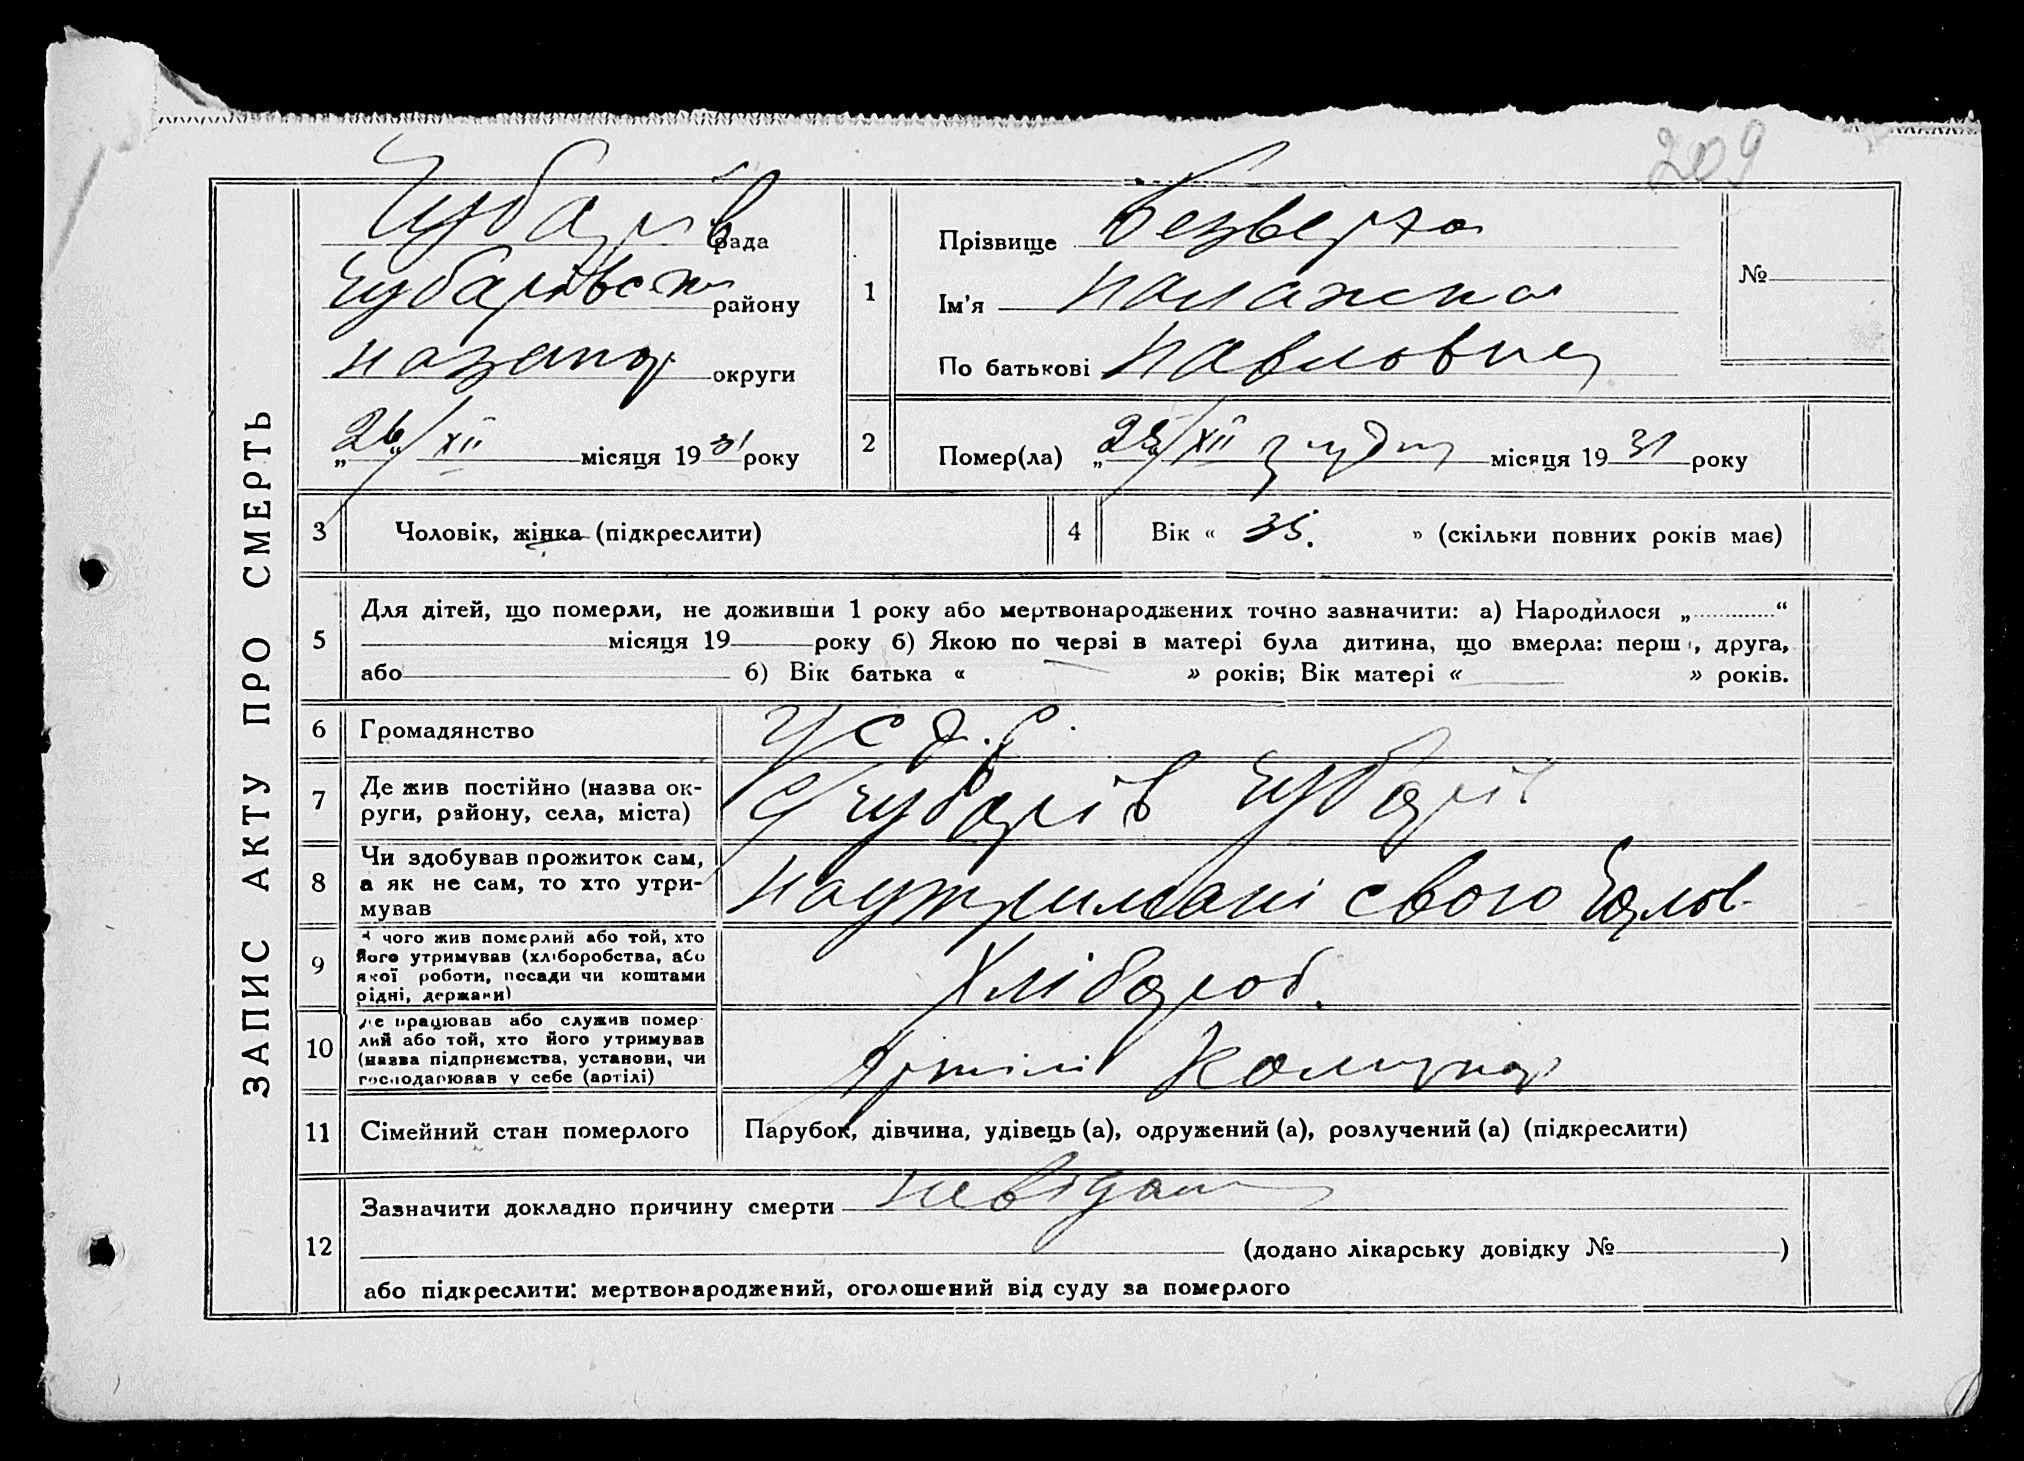 209
ЗАПИС АКТУ ПРО СМЕРТЬ
Чубарів рада
Чубарівськ району
округи
„26“/XII місяця 1931 року
1
Прізвище Безверха
Ім'я Палажка
По батькові Павловна
№
2
Помер(ла) „25“/XII грудня місяця 1931 року
3 Чоловік, жінка (підкреслити)
4 Вік « 35. » (скільки повних років має)
5
Для дітей, що померли, не доживши 1 року або мертвонароджених точно зазначити: а) Народилося „ “
місяця 19 року б) Якою по черзі в матері була дитина, що вмерла: перш , друга,
або б) Вік батька « » років; Вік матері « » років.
6 Громадянство УСРР
7 Де жив постійно (назва ок-
руги, району, села, міста) с/Чубарів Чубарів
8 Чи здобував прожиток сам,
а як не сам, то хто утри-
мував
на утримані свого Чолов.
9 чого жив померлий або той, хто
його утримував (хліборобства, або
якої роботи, посади чи коштами
рідні, держави)
Хлібороб.
10 Де працював або служив помер-
лий або той, хто його утримував
(назва підприємства, установи, чи
господарював у себе (артілі)
Артілі Комунар
11 Сімейний стан померлого Парубок, дівчина, удівець (а), одружений (а), розлучений (а) (підкреслити)
12
Зазначити докладно причину смерти невідома
(додано лікарську довідку № )
або підкреслити: мертвонароджений, оголошений від суду за померлого